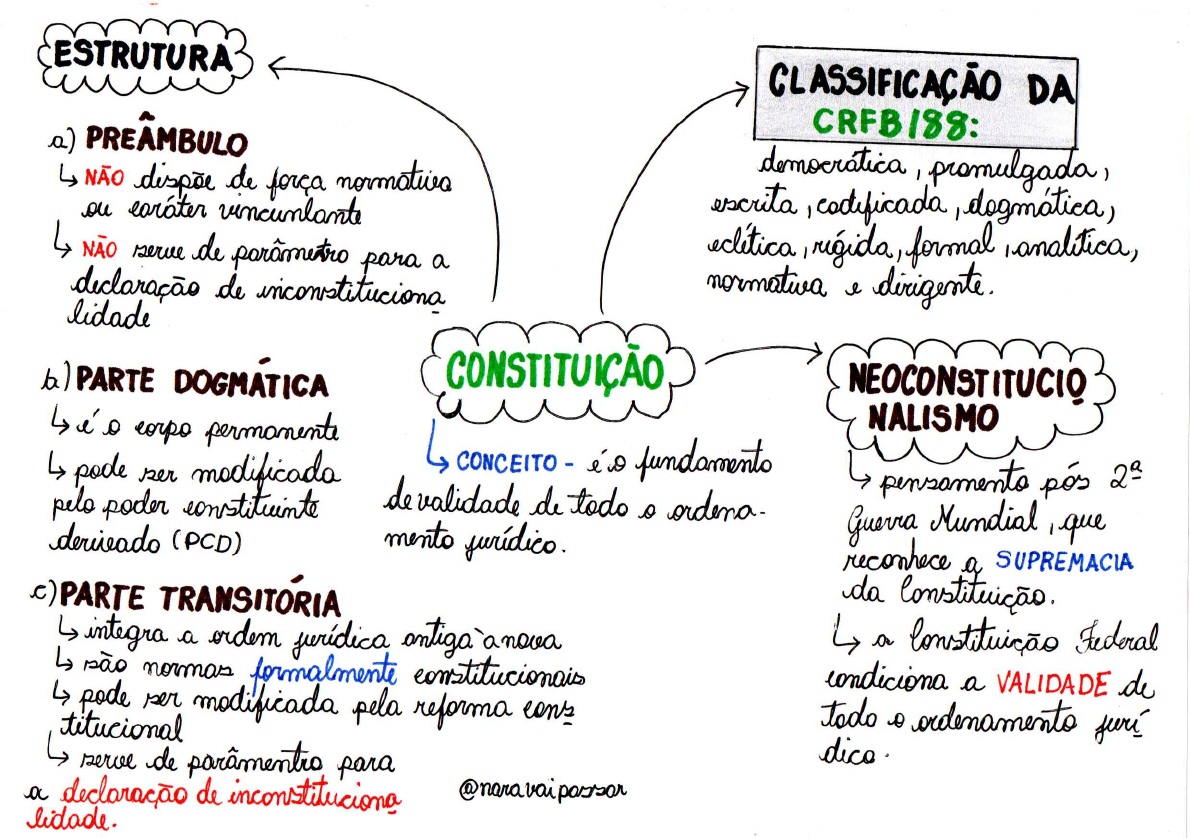 ESTRUTURA
a) PREÂMBULO
↳ NÃO dispõe de força normativa
ou caráter vincunlante
↳ NÃO serve de parâmetro para a
declaração de inconstituciona
lidade
b) PARTE DOGMÁTICA
↳ é o corpo permanente
↳ pode ser modificada
pelo poder constituinte
derivado (PCD)
c) PARTE TRANSITÓRIA
↳ integra a ordem jurídica antiga à nova
↳ são normas formalmente constitucionais
↳ pode ser modificada pela reforma cons
titucional
↳ serve de parâmentro para
a declaração de inconstituciona
lidade.
CONSTITUIÇÃO
↳ CONCEITO - é o fundamento
de validade de todo o ordena-
mento jurídico.
@naravaipassar
CLASSIFICAÇÃO DA
CRFB/88:
democrática, promulgada,
escrita, codificada, dogmática,
eclética, rígida, formal, analítica,
normativa e dirigente.
NEOCONSTITUCIO
NALISMO
↳ pensamento pós 2ª
Guerra Mundial, que
reconhece a SUPREMACIA
da Constituição.
↳ a Constituição Federal
condiciona a VALIDADE de
todo o ordenamento jurí
dico.